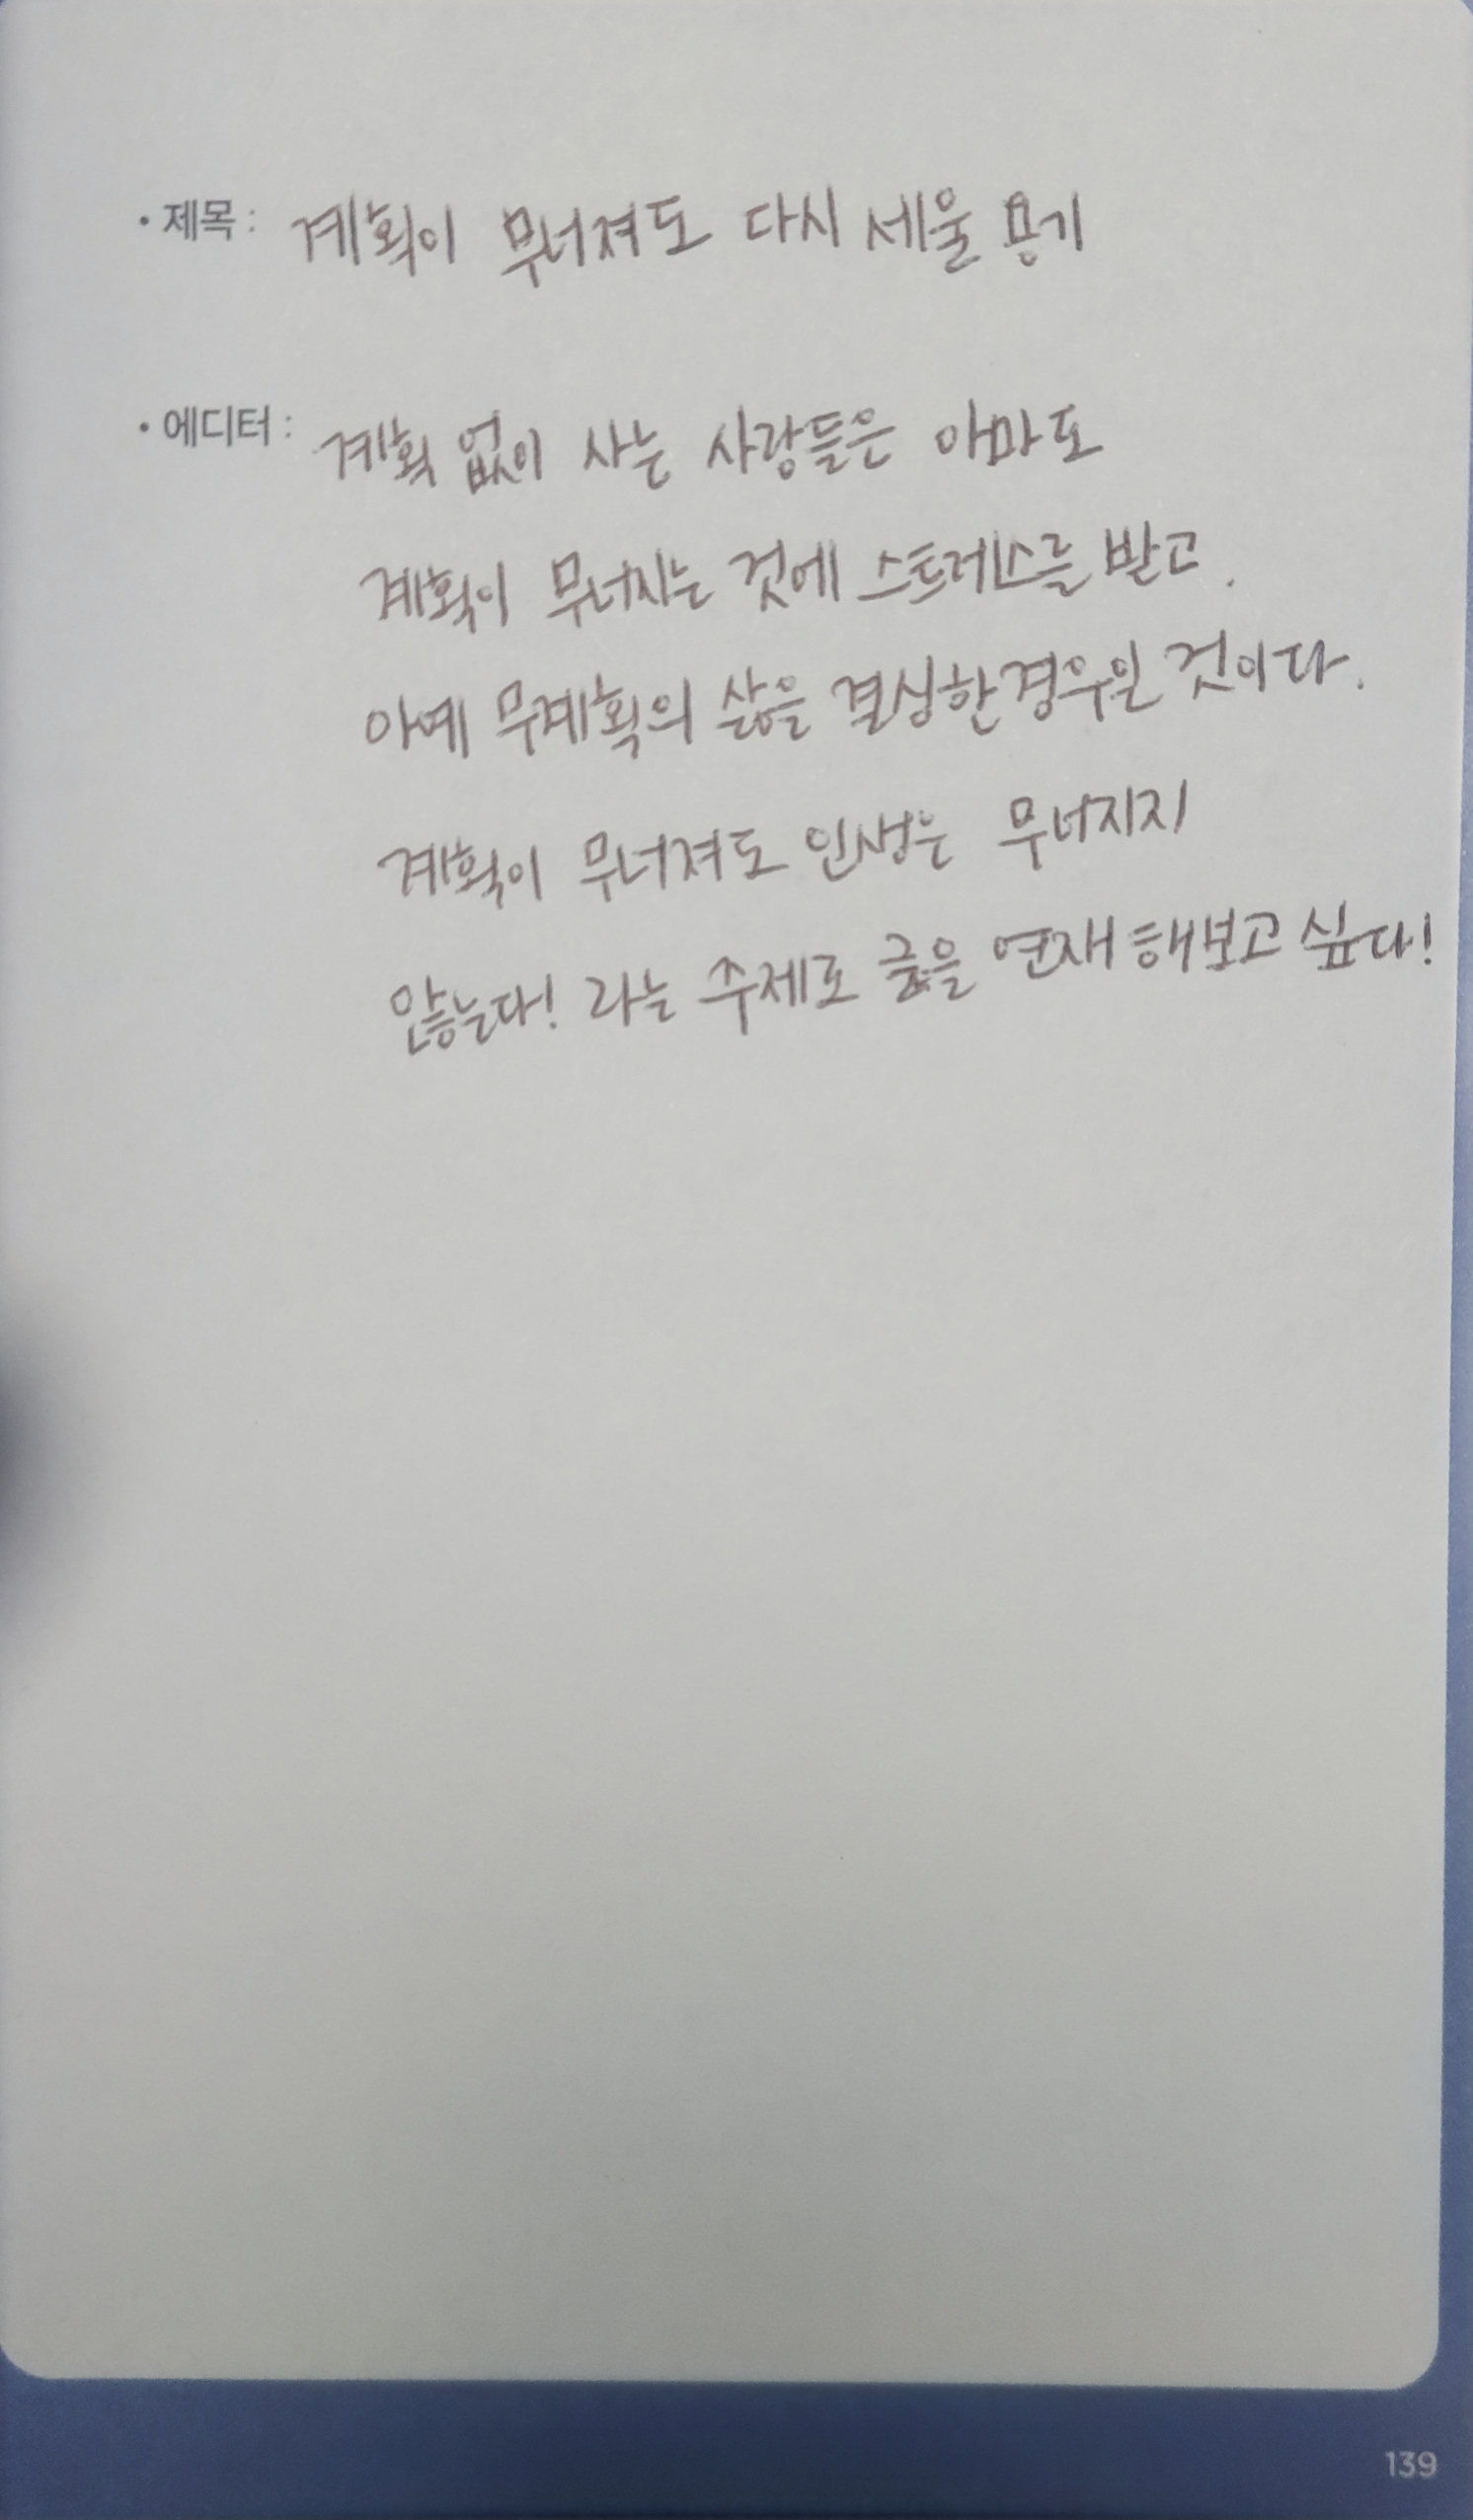 • 제목 : 계획이 무너져도 다시 세울 용기
• 에디터 : 계획 없이 사는 사람들은 아마도
계획이 무너지는 것에 스트레스를 받고.
아예 무계획의 삶을 결심한 경우일 것이다.
계획이 무너져도 인생은 무너지지
않는다! 라는 주제로 글을 연재 해보고 싶다!
139